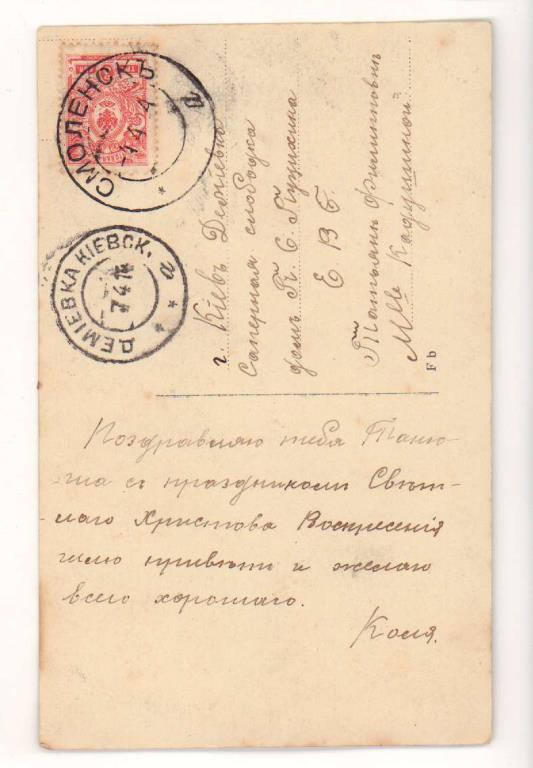 СМОЛЕНСКЪ
ДЕМІЕВКА КІЕВСК.
7 4 14
г. Кіевъ Деміевка
Саперная слободка
домъ К. С. Пузихина
Е В Б.
Татьянѣ Филипповнѣ
Mlle Кадушиной
Fb
Поздравляю тебя Таню-
ша съ праздникомъ Свѣт-
лаго Христова Воскресенія
шлю привѣтъ и желаю
всего хорошаго.
Коля.